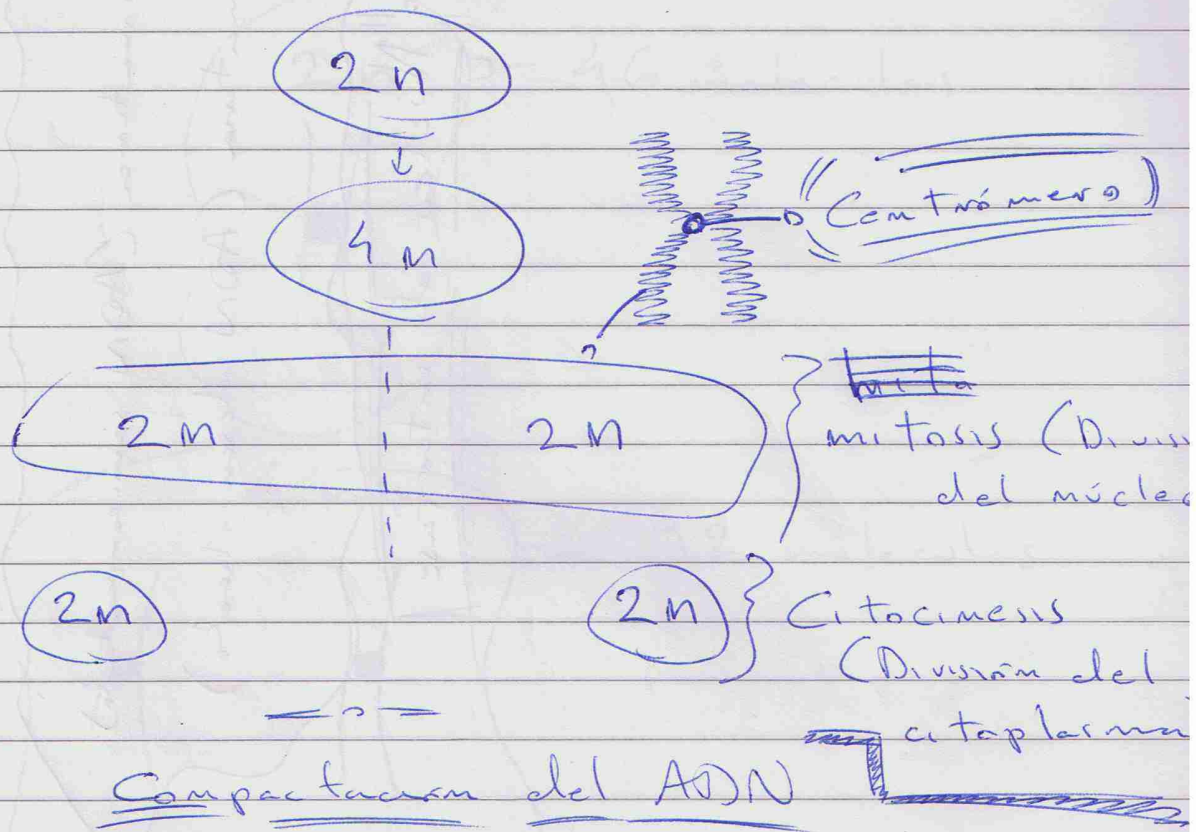 2n
4n
Centrómero
2n 2n
mitosis (Divisi
del núcleo
2n 2n
Citocinesis
(División del
citoplasma
Compactación del ADN